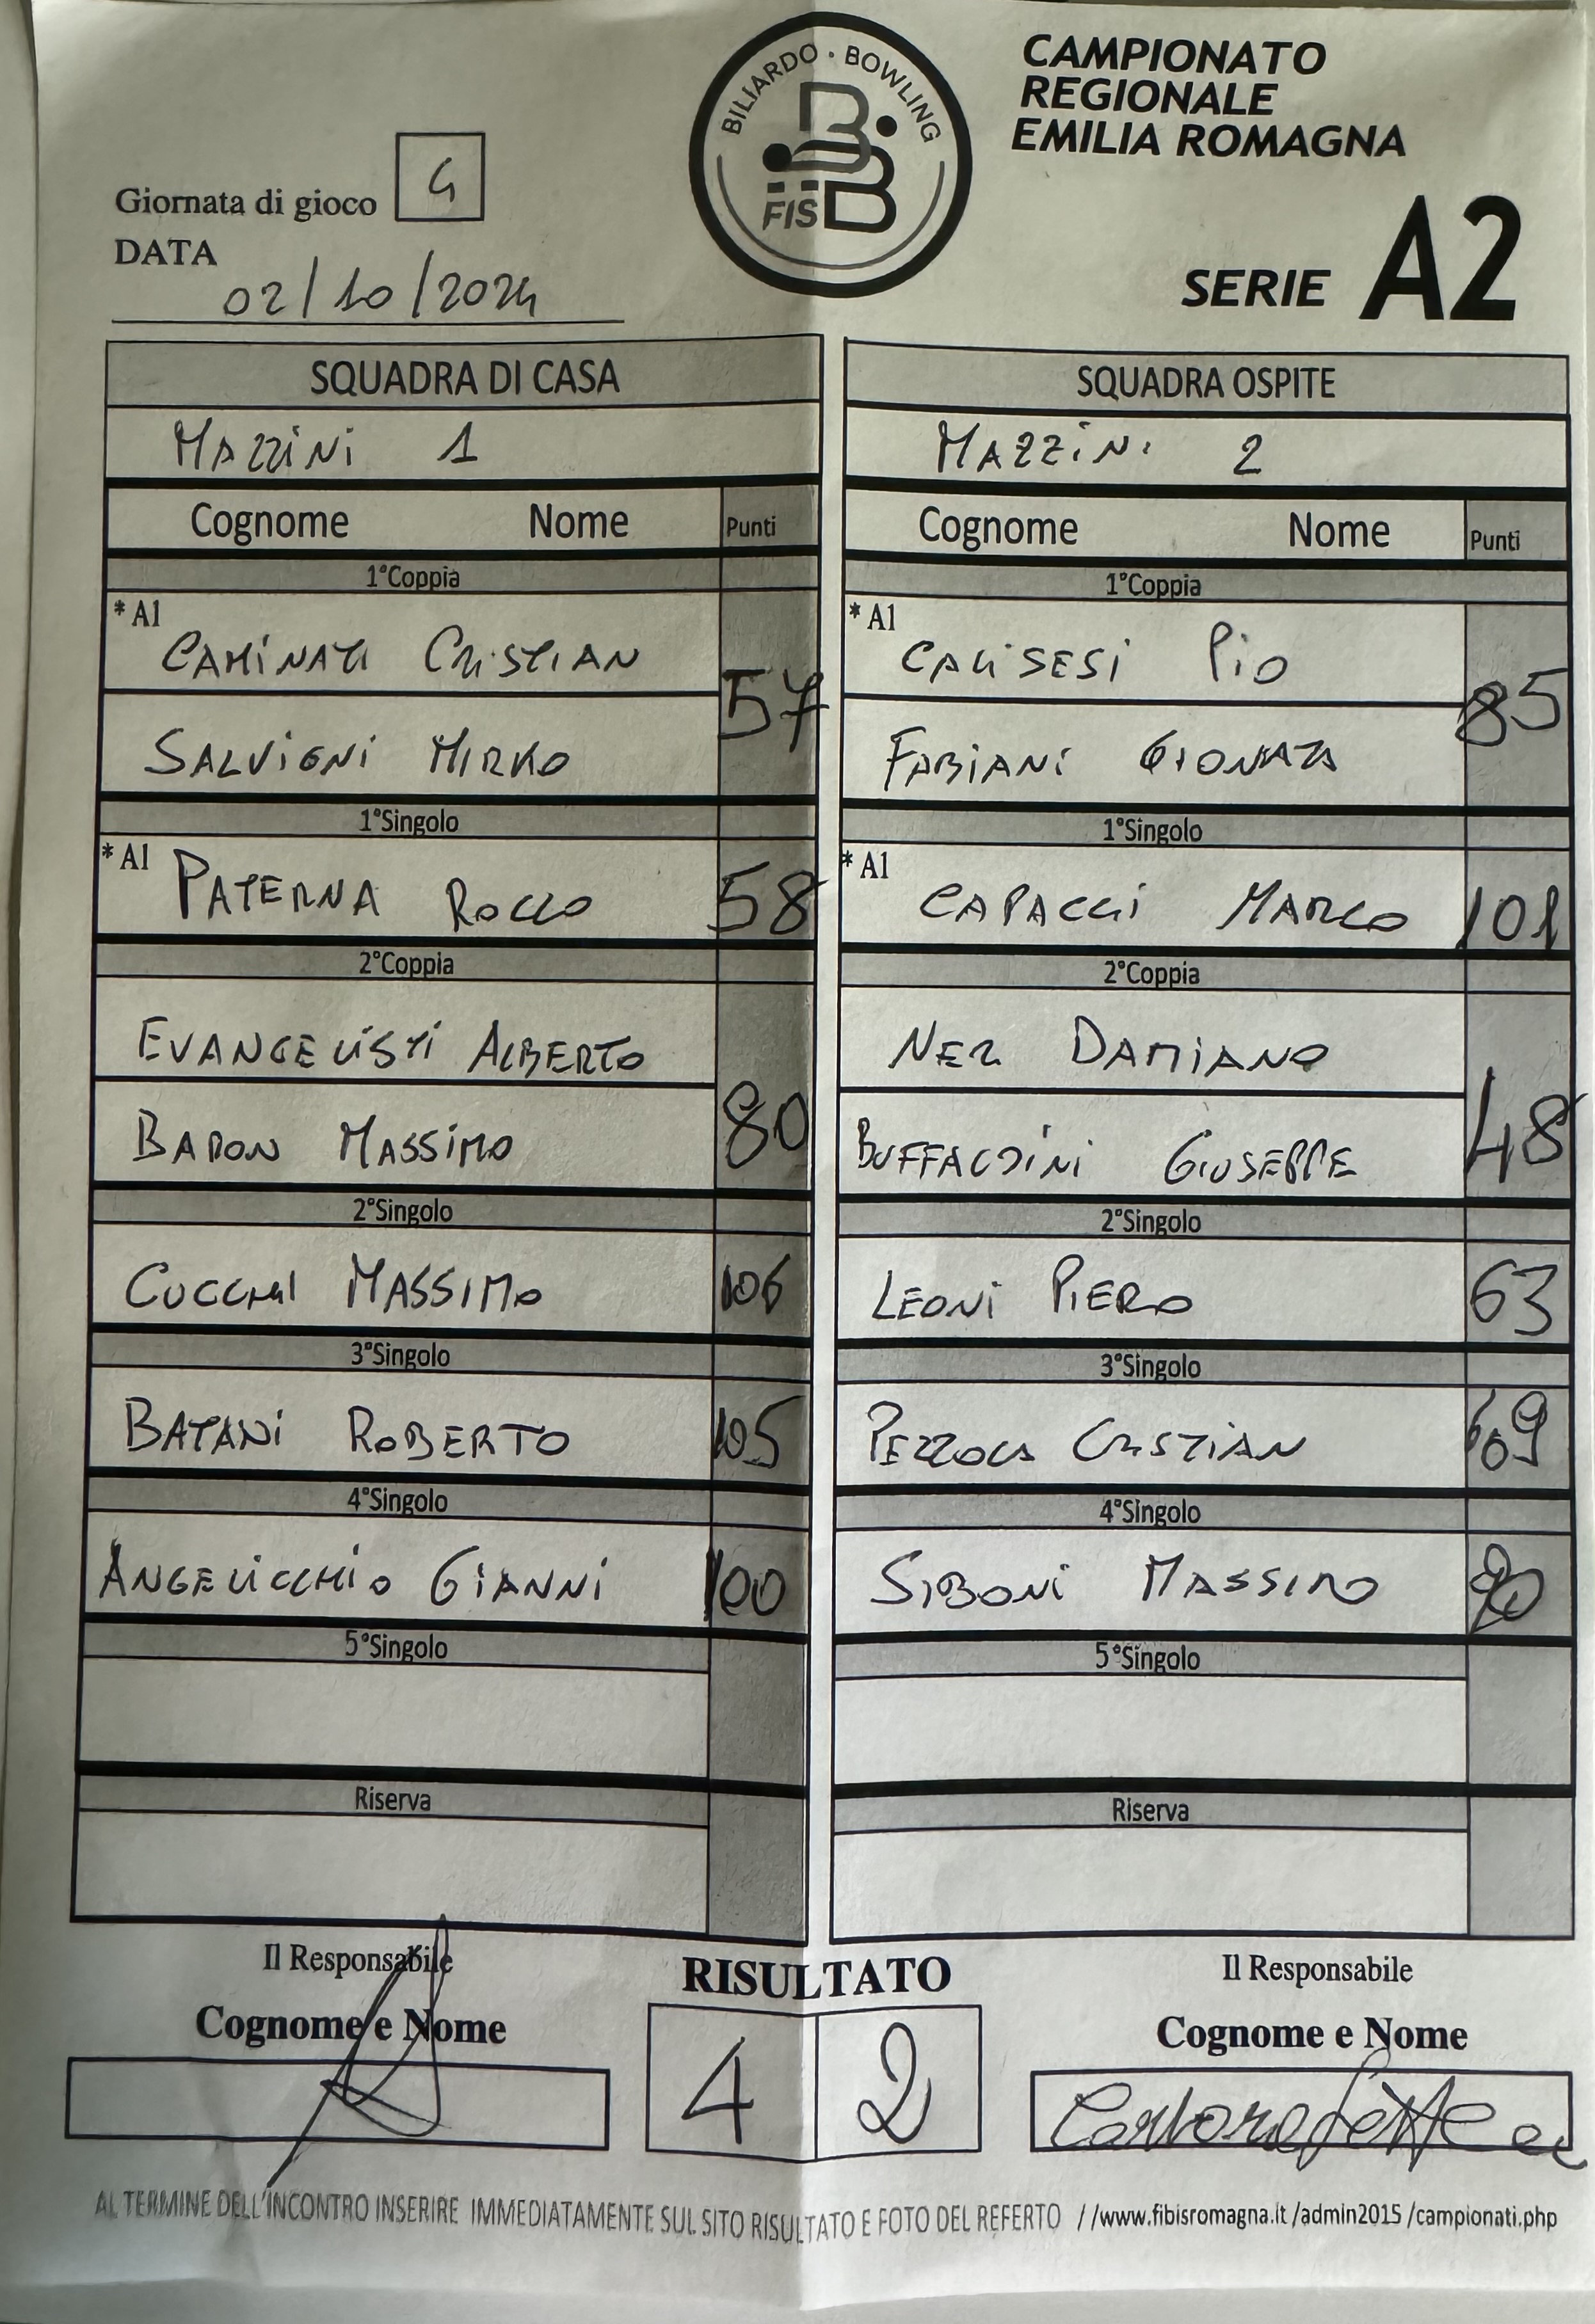 BILIARDO · BOWLING
FISBB
CAMPIONATO
REGIONALE
EMILIA ROMAGNA
SERIE A2
Giornata di gioco 4
DATA
02/10/2024
SQUADRA DI CASA
MAZZINI 1
Cognome Nome Punti
1°Coppia
* A1
CAMINATI CRISTIAN
57
SALVIGNI MIRKO
1°Singolo
* A1
PATERNA ROCCO 58
2°Coppia
EVANGELISTI ALBERTO
80
BARON MASSIMO
2°Singolo
CUCCHI MASSIMO 106
3°Singolo
BATANI ROBERTO 105
4°Singolo
ANGELICCHIO GIANNI 100
5°Singolo
Riserva
SQUADRA OSPITE
MAZZINI 2
Cognome Nome Punti
1°Coppia
* A1
CALISESI PIO
85
FABIANI GIONATA
1°Singolo
* A1
CAPACCI MARCO 101
2°Coppia
NERI DAMIANO
48
BUFFADINI GIUSEPPE
2°Singolo
LEONI PIERO 63
3°Singolo
CRISTIAN 69
4°Singolo
SIBONI MASSIMO
5°Singolo
Riserva
Il Responsabile
Cognome e Nome
RISULTATO
4 2
Il Responsabile
Cognome e Nome
AL TERMINE DELL'INCONTRO INSERIRE IMMEDIATAMENTE SUL SITO RISULTATO E FOTO DEL REFERTO //www.fibisromagna.it /admin2015 /campionati.php